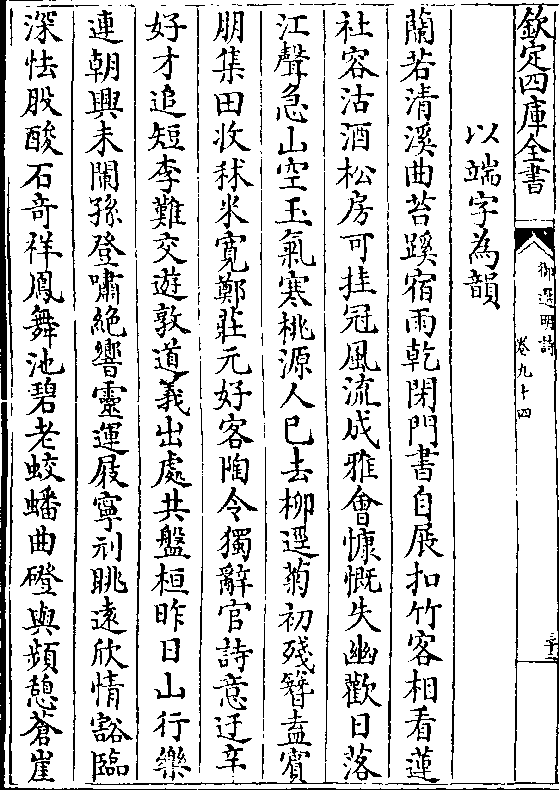 欽定四庫全書
御選明詩
卷九十四
以端字為韻
蘭若清溪曲苔蹊宿雨乾閉門書自展扣竹客相看蓮
社容沽酒松房可挂冠風流成雅會慷慨失幽歡日落
江聲急山空玉氣寒桃源人已去柳逕菊初殘簪盍賓
朋集田收秫米寛鄭莊元好客陶令獨辭官詩意迂辛
好才追短李難交遊敦道義出處共盤桓昨日山行樂
連朝興未闌孫登嘯絶響靈運屐寧刓眺遠欣情豁臨
深怯股酸石奇祥鳳舞池碧老蛟蟠曲磴與頻憩蒼崖